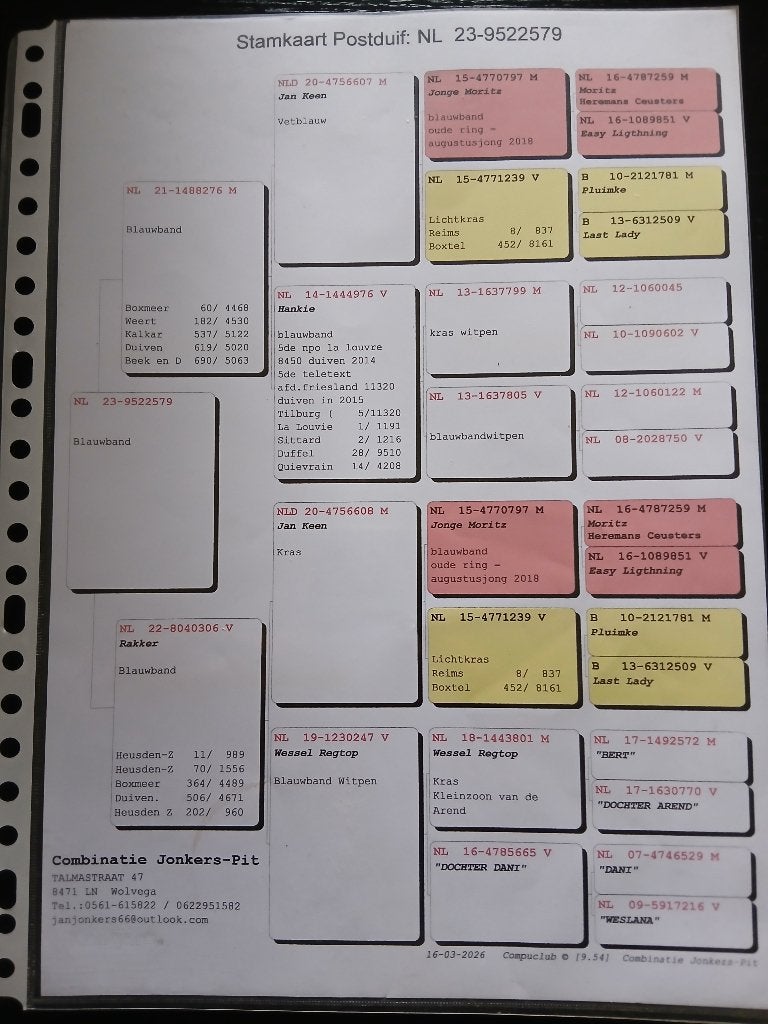 Stamkaart Postduif: NL 23-9522579
NL 23-9522579
Blauwband
NL 21-1488276 M
Blauwband
Boxmeer 60/ 4468
Weert 182/ 4530
Kalkar 537/ 5122
Duiven 619/ 5020
Beek en D 690/ 5063
NL 22-8040306 V
Rakker
Blauwband
Heusden-Z 11/ 989
Heusden-Z 70/ 1556
Boxmeer 364/ 4489
Duiven. 506/ 4671
Heusden Z 202/ 960
NLD 20-4756607 M
Jan Keen
Vetblauw
NL 14-1444976 V
Hankie
blauwband
5de npo la louvre
8450 duiven 2014
5de teletext
afd.friesland 11320
duiven in 2015
Tilburg ( 5/11320
La Louvie 1/ 1191
Sittard 2/ 1216
Duffel 28/ 9510
Quievrain 14/ 4208
NLD 20-4756608 M
Jan Keen
Kras
NL 19-1230247 V
Wessel Regtop
Blauwband Witpen
NL 15-4770797 M
Jonge Moritz
blauwband
oude ring =
augustusjong 2018
NL 15-4771239 V
Lichtkras
Reims 8/ 837
Boxtel 452/ 8161
NL 13-1637799 M
kras witpen
NL 13-1637805 V
blauwbandwitpen
NL 15-4770797 M
Jonge Moritz
blauwband
oude ring =
augustusjong 2018
NL 15-4771239 V
Lichtkras
Reims 8/ 837
Boxtel 452/ 8161
NL 18-1443801 M
Wessel Regtop
Kras
Kleinzoon van de
Arend
NL 16-4785665 V
"DOCHTER DANI"
NL 16-4787259 M
Moritz
Heremans Ceusters
NL 16-1089851 V
Easy Ligthning
B 10-2121781 M
Pluimke
B 13-6312509 V
Last Lady
NL 12-1060045
NL 10-1090602 V
NL 12-1060122 M
NL 08-2028750 V
NL 16-4787259 M
Moritz
Heremans Ceusters
NL 16-1089851 V
Easy Ligthning
B 10-2121781 M
Pluimke
B 13-6312509 V
Last Lady
NL 17-1492572 M
"BERT"
NL 17-1630770 V
"DOCHTER AREND"
NL 07-4746529 M
"DANI"
NL 09-5917216 V
"WESLANA"
Combinatie Jonkers-Pit
TALMASTRAAT 47
8471 LN Wolvega
Tel.:0561-615822 / 0622951582
janjonkers66@outlook.com
16-03-2026 Compuclub © [9.54] Combinatie Jonkers-Pit